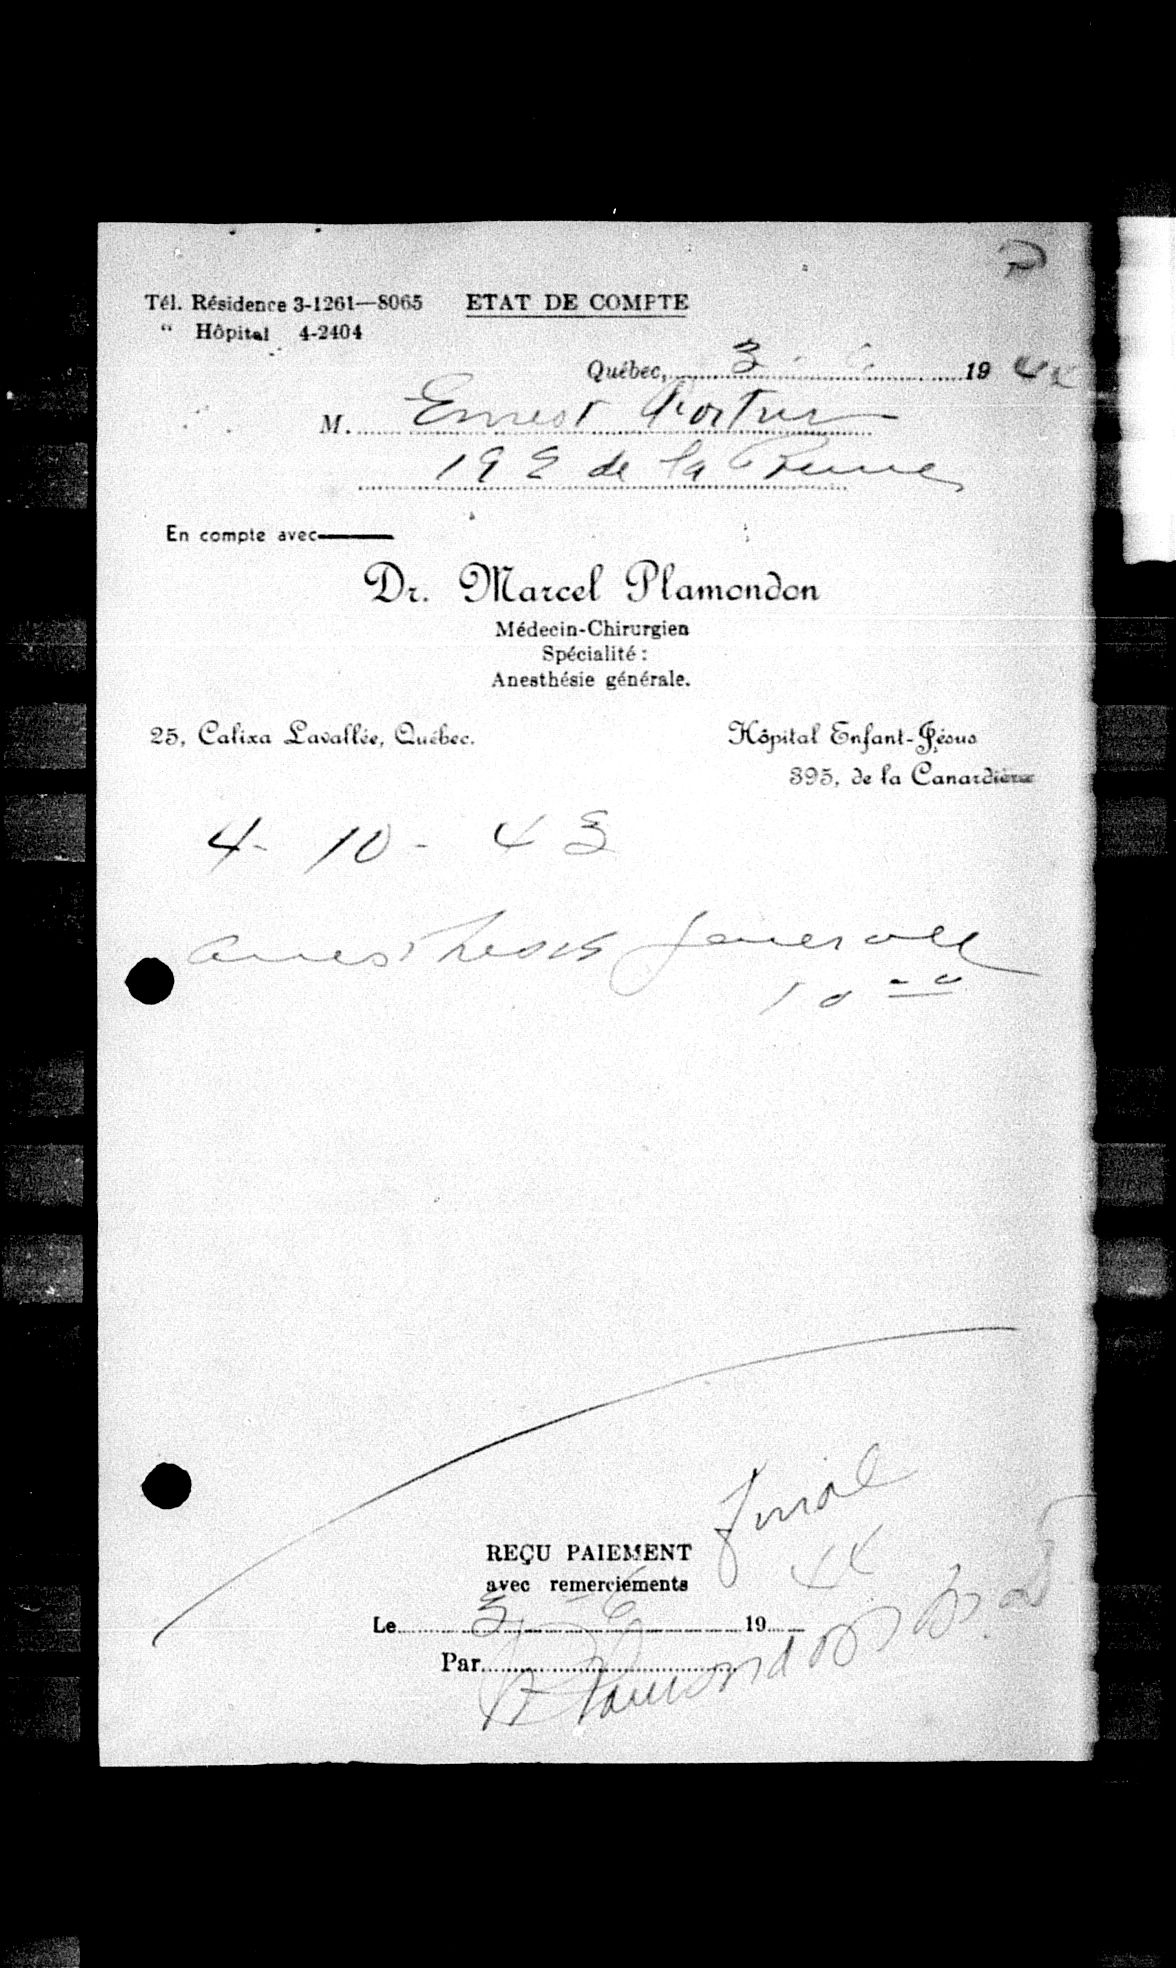 P
Tél. Résidence 3-1261—8065 ETAT DE COMPTE
" Hôpital 4-2404
Québec, 3 - 6 19 44
M. Ernest
192 de la Reine
En compte avec
Dr. Marcel Plamondon
Médecin-Chirurgien
Spécialité :
Anesthésie générale.
25, Calixa Lavallée, Québec. Hôpital Enfant-Jésus
395, de la Canardière
4 - 10 - 43
anesthesie generale
10 00
final
REÇU PAIEMENT
avec remerciements
Le 3 - 6 19 44
Par Plamondon m.d